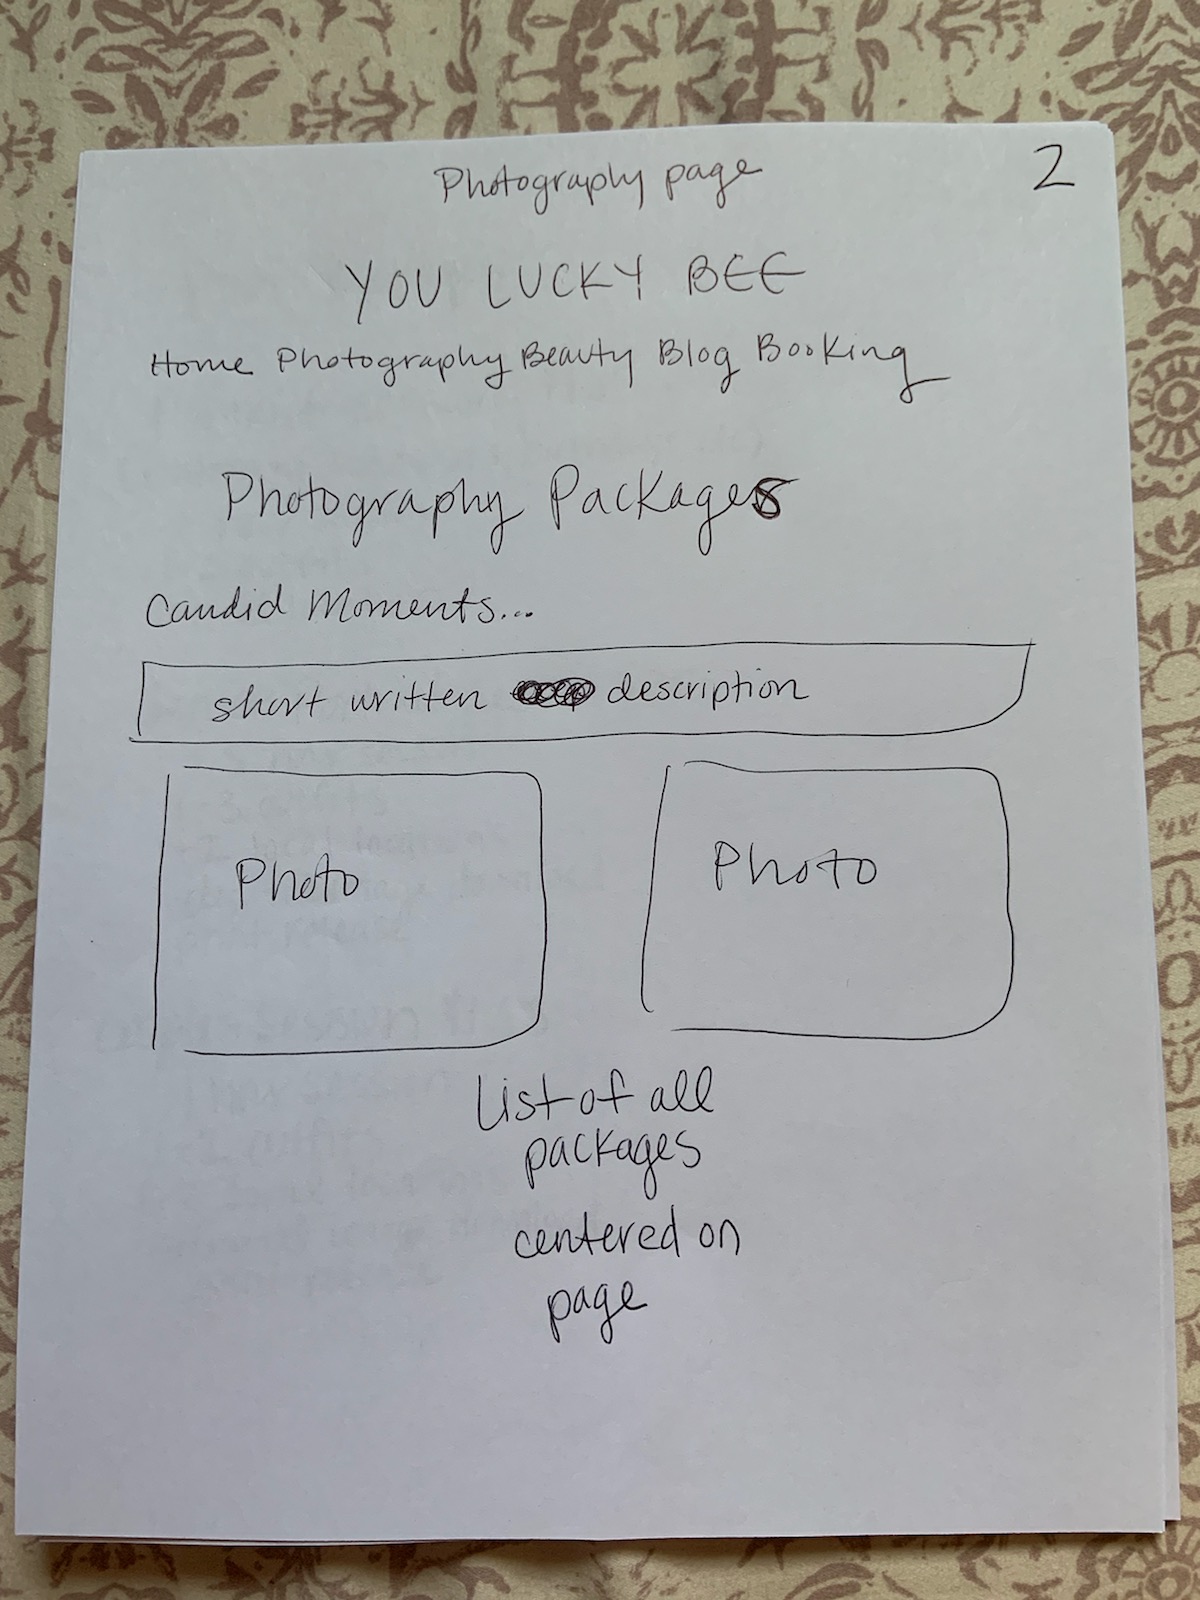 Photography page
2
YOU LUCKY BEE
Home Photography Beauty Blog Booking
Photography Packages
Candid Moments...
short written description
Photo
Photo
List of all
packages
centered on
page